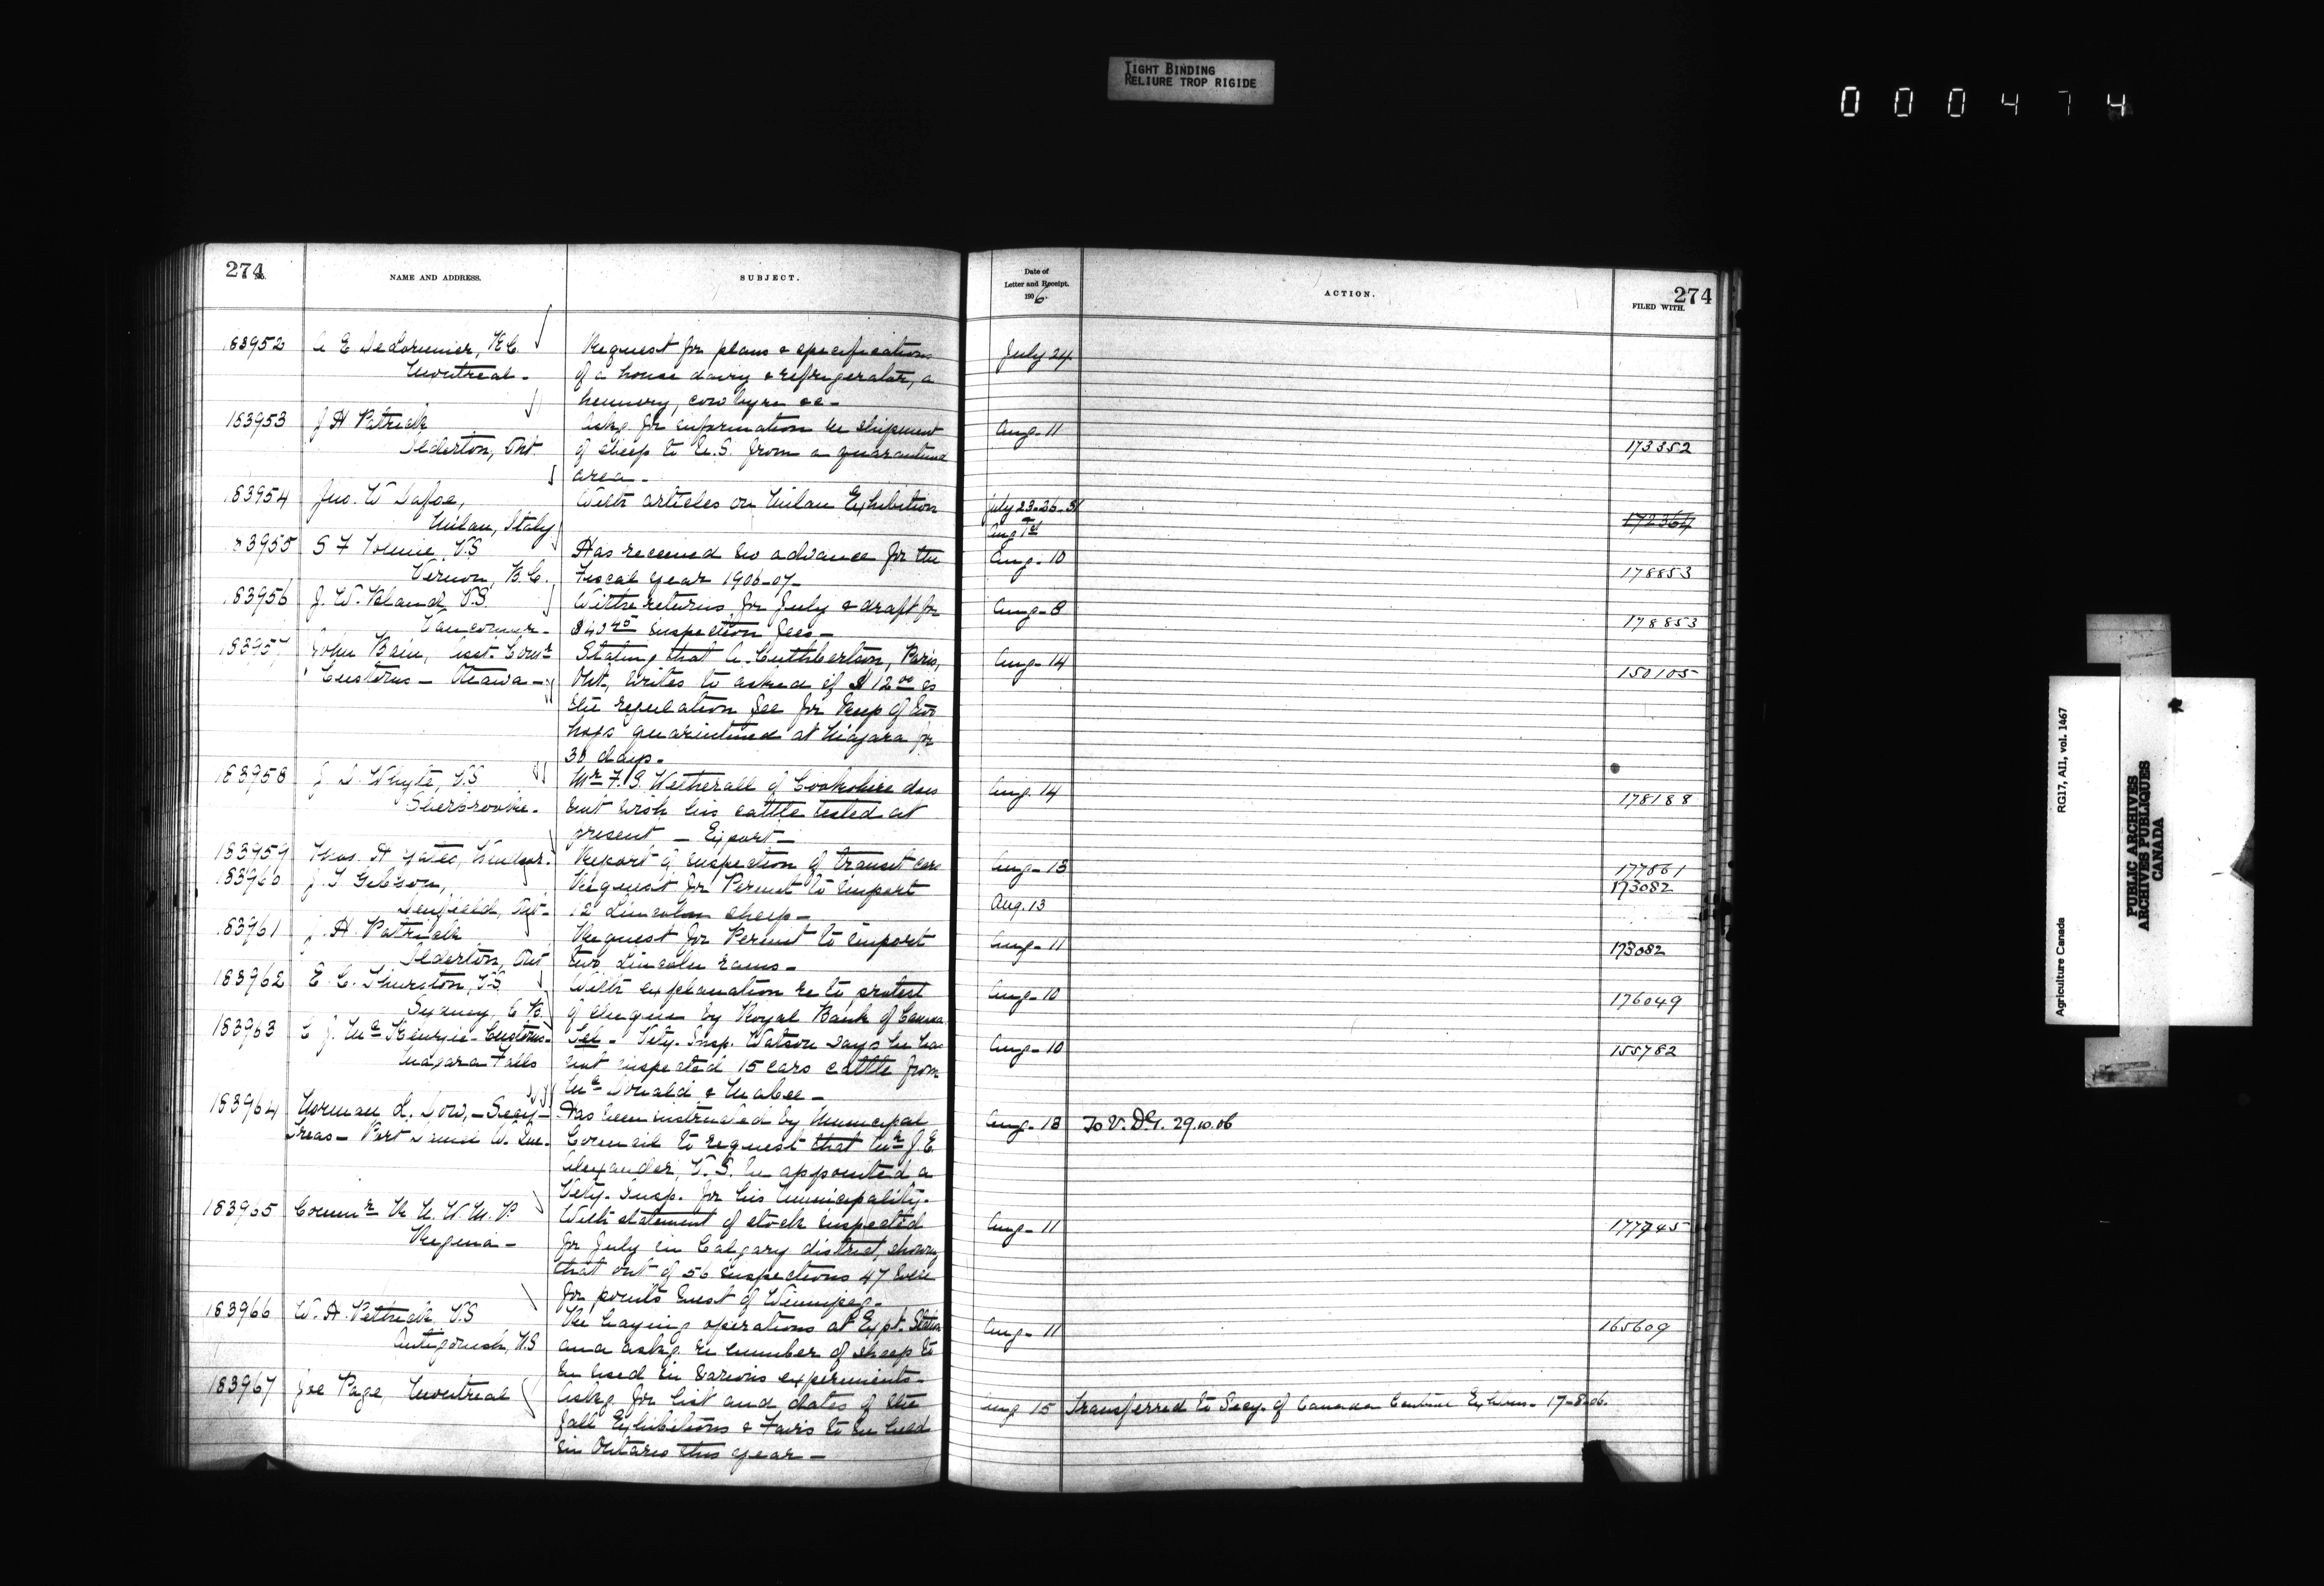 TIGHT BINDING
RELIURE TROP RIGIDE
000474
274
NAME AND ADDRESS.
SUBJECT.
Date of
Letter and Receipt.
1906.
ACTION.
274
FILED WITH.
183952 A E DeLorimier, K.C. Request for plans & specifications July 24
Montreal - of a house dairy & refrigerator, a
hennery, cow byre &c -
183953 J H Patrick Askg. for information re shipment Aug. 11
Ilderton, Ont of sheep to U.S. from a quarantined 173352
area -
183954 Jno. W Dafoe, With articles on Milan Exhibition July 23-26-31
Milan, Italy Aug 1st 172364
183955 S F Tolmie, V.S Has received no advance for the Aug. 10
Vernon, B.C. Fiscal Year 1906-07- 178853
183956 J. W. Bland, V.S. With returns for July & draft for Aug - 8
Vancouver - inspection fees - 178853
183957 John Bain, Asst. Comr Stating that A. Cuthbertson, Paris, Aug - 14
Customs - Ottawa - Ont, writes to asked if $12.00 is 150105
the regulation fee for keep of two
hogs quarintined at Niagara for
30 days.
183958 J. D. Whyte, V.S Mr F. S. Wetherall of Cookshire does Aug. 14
Sherbrooke. not wish his cattle tested at 178188
present - Export -
183959 Thos. H Yates, Windsor. Report of inspection of transit cars Aug - 13 177861
183960 J. T Gibson, Request for Permit to import 173082
Denfield, Ont - 12 Lincoln sheep - Aug. 13
183961 J. H. Patrick Request for Permit to import Aug - 11
Ilderton, Ont two Lincoln rams - 173082
183962 E. C. Thurston, V.S. With explanation re to protest Aug - 10
Sydney, C B. of cheque by Royal Bank of Canada 176049
183963 C J. McKenzie - Customs - Tel - Vety. Insp. Watson says he has Aug - 10
Niagara Falls not inspected 15 cars cattle from 155782
McDonald & Mabee -
183964 Norman L. Dow, - Secy - Has been instructed by Municipal Aug. 13 To V. D.G. 29.10.06
Treas - Port Daniel W. Que. Council to request that Mr J. E
Alexander, V.S. be appointed a
Vety. Insp. for his Municipality.
183965 Commr R. N. W. M. P. With statement of stock inspected Aug - 11 177745
Regina - for July in Calgary district, showing
that out of 56 inspections 47 were
for points West of Winnipeg -
183966 W. H. Pethick, V.S Re haying operations at Expt. Station Aug - 11 165609
Antigonish, N.S and askg. re number of sheep to
be used in various experiments -
183967 Joe Page, Montreal Askg. for list and dates of the Aug 15 Transferred to Secy. of Canada Central Exhbn. - 17-8-06.
fall Exhibitions & Fairs to be held
in Ontario this year -
Agriculture Canada RG17, AII, vol. 1467
PUBLIC ARCHIVES
ARCHIVES PUBLIQUES
CANADA